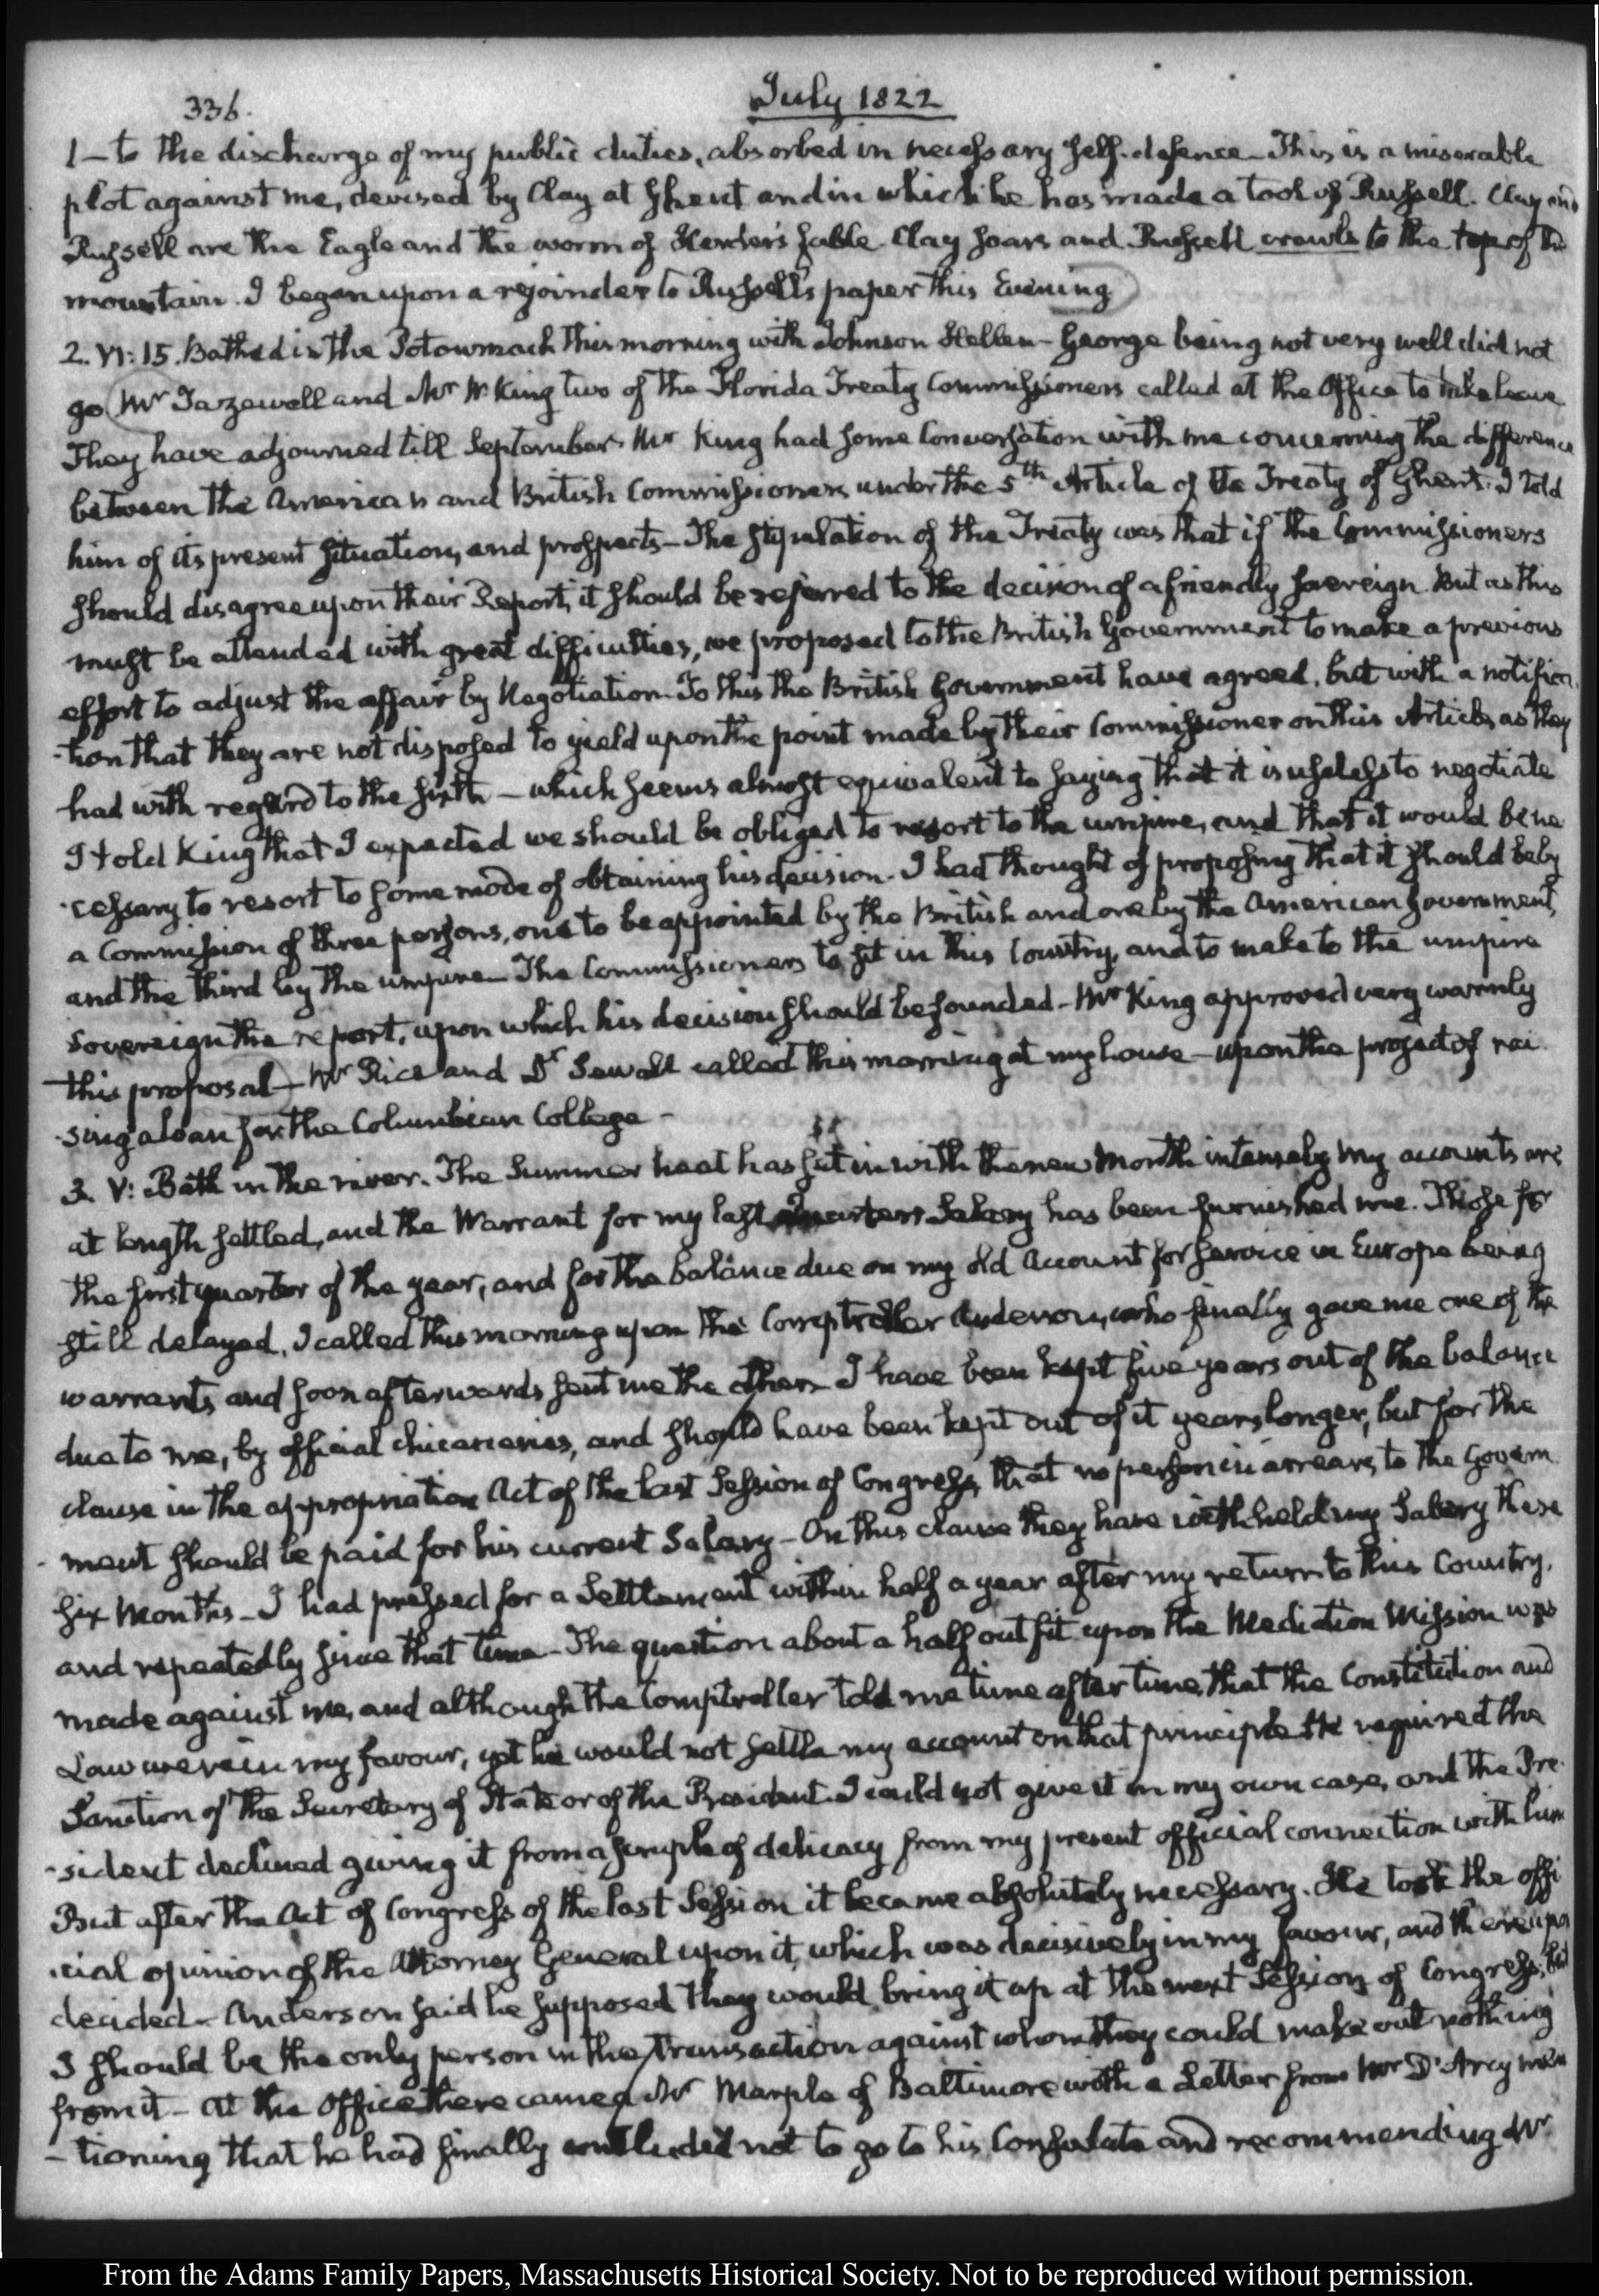 336.
July 1822
1 - to the discharge of my public duties, absorbed in necessary self-defence - This is a miserable
plot against me, devised by Clay at Ghent and in which he has made a tool of Russell. Clay and
Russell are the Eagle and the worm of Herder's fable. Clay soars and Russell crawls to the top of the
mountain. I began upon a rejoinder to Russell's paper this Evening
2. VI: 15. Bathed in the Potowmack this morning with Johnson Hellen - George being not very well did not
go Mr Tazewell and Mr W. King two of the Florida Treaty Commissioners called at the Office to take leave
They have adjourned till September. Mr King had some Conversation with me concerning the difference
between the American and British Commissioners under the 5th Article of the Treaty of Ghent. I told
him of its present situation, and prospects - The stipulation of the Treaty was that if the Commissioners
should disagree upon their Report, it should be referred to the decision of a friendly sovereign. But as this
must be attended with great difficulties, we proposed to the British Government to make a previous
effort to adjust the affair by Negotiation. To this the British Government have agreed, but with a notifica
-tion that they are not disposed to yield upon the point made by their Commissioner on this Article, as they
had with regard to the sixth - which seems almost equivalent to saying that it is useless to negotiate
I told King that I expected we should be obliged to resort to the umpire, and that it would be ne
-cessary to resort to some mode of obtaining his decision. I had thought of proposing that it should be by
a Commission of three persons, one to be appointed by the British and one by the American Government,
and the third by the umpire - The Commissioners to sit in this Country, and to make to the umpire
Sovereign the report, upon which his decision should be founded - Mr King approved very warmly
this proposal - Mr Rice and Dr Sewall called this morning at my house - upon the project of rai
-sing a loan for the Columbian College -
3. V: Bath in the river. The Summer heat has set in with the new Month intensely My accounts are
at length settled, and the Warrant for my last Quarters Salary has been furnished me. Those for
the first quarter of the year, and for the balance due on my old Account for service in Europe being
still delayed, I called this morning upon the Comptroller Anderson, who finally gave me one of the
warrants and soon afterwards sent me the other. I have been kept five years out of the balance
due to me, by official chicaneries, and should have been kept out of it years longer, but for the
clause in the appropriation Act of the last Session of Congress, that no person in arrears, to the Govern
-ment should be paid for his current Salary - On this clause they have withheld my Salary these
six Months - I had pressed for a Settlement within half a year after my return to this Country,
and repeatedly since that time - The question about a half outfit upon the Mediation Mission was
made against me, and although the Comptroller told me time after time, that the Constitution and
Law were in my favour, yet he would not settle my account on that principle. He required the
Sanction of the Secretary of State or of the President. I could not give it in my own case, and the Pre
-sident declined giving it from a scruple of delicacy from my present official connection with him
But after the Act of Congress of the last Session it became absolutely necessary. He took the offi
-cial opinion of the Attorney General upon it, which was decisively in my favour, and thereupon
decided - Anderson said he supposed they would bring it up at the next Session of Congress; but
I should be the only person in the transaction against whom they could make out nothing
from it - At the Office there came Mr Marple of Baltimore with a Letter from Mr D'Arcy men
-tioning that he had finally concluded not to go to his Consulate and recommending Mr
From the Adams Family Papers, Massachusetts Historical Society. Not to be reproduced without permission.